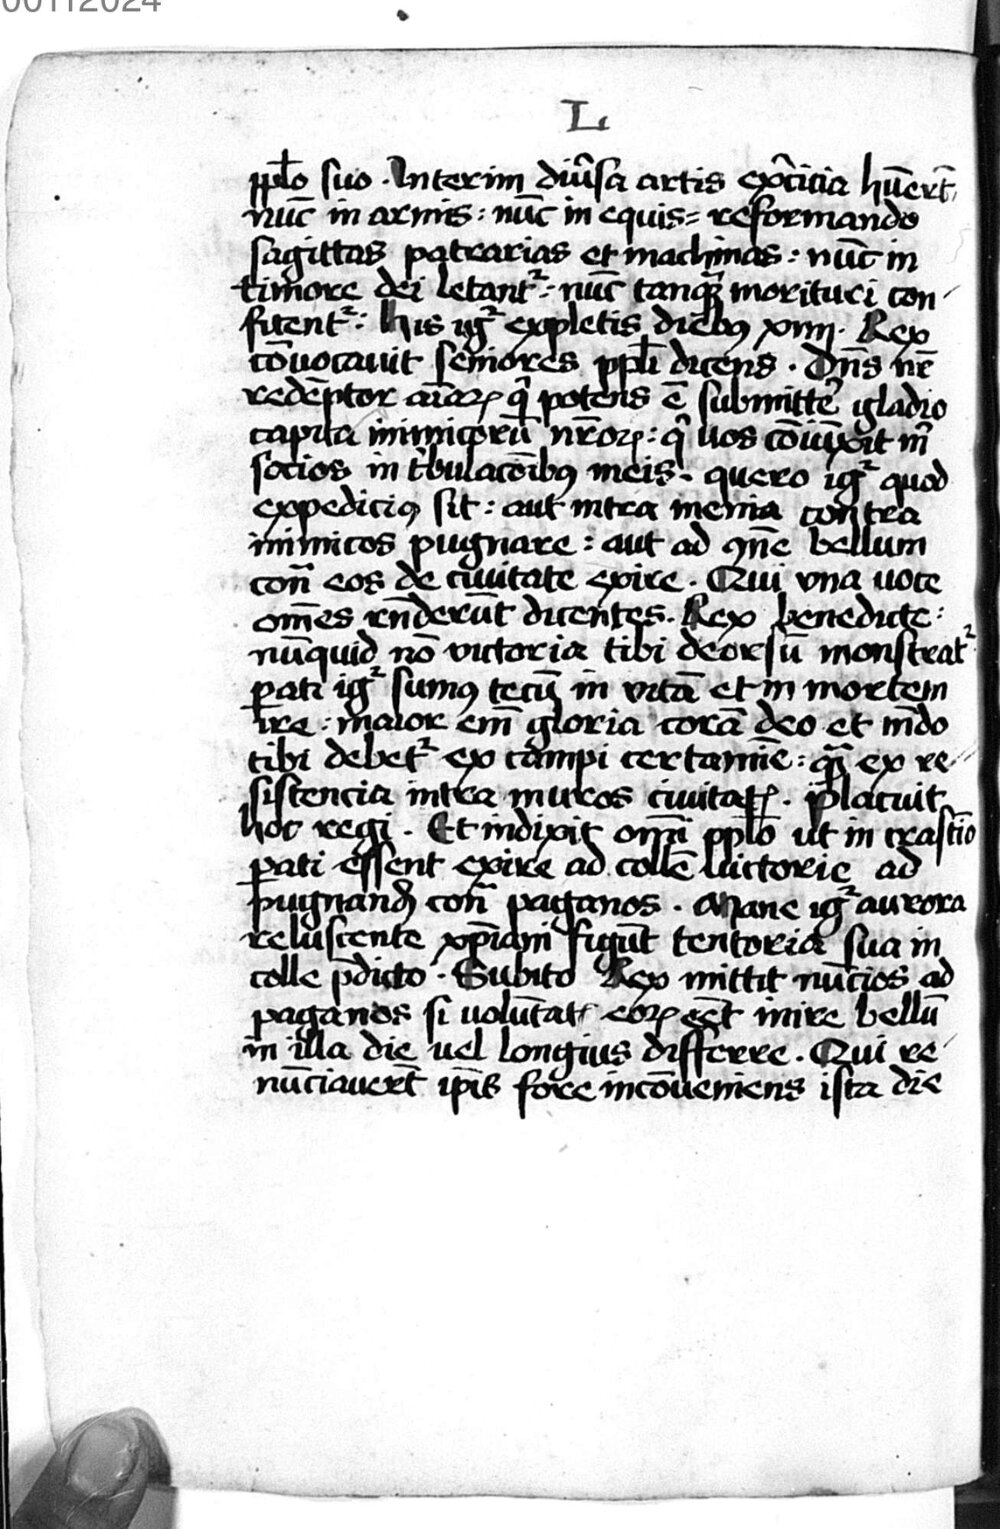 00112024
L
pp̄lo suo · Interim diũsa artis exc̃icia hũerт̃
nūc in armis : nūc in equis = reformando
sagittas patrarias et machinas : nūc in
timore dei letantᷣ : nūc tanqᷓ morituri con
fitentᷣ : his igᷣ expletis diebꝰ xiiii · Rex
cōvocavit seniores pp̄li dicens · Dn̄s nr̄
redēptor aīaꝝ qͥ potens ē submitte͛ gladio
capita inimicorū nr̄oꝝ : qͥ vos cōiūxit mͥ
socios in tͥbulacōibꝰ meis · quero igᷣ quod
expediciꝰ sit : aut intra menia contra
inimicos pugnare : aut ad om̄e bellum
con̄ eos de civitate exire · Qui vna voce
om̄es rn̄derūt dicentes · Rex benedicte :
nūquid nō victoria tibi deorsū monstratᷣ
ꝑati igᷣ sumꝰ tecū in vitā et in mortem
ire : maior em̄ gloria corā deo et mūdo
tibi debetᷣ ex campi certamīe : qᷓ ex re
sistencia intra muros civitatꝭ · Placuit
hoc regi · Et indixit om̄i pp̄lo ut in crastīo
ꝑati essent exire ad collē victorie ad
pugnand̄ con̄ paganos · Mane igᷣ aurora
reluscente xp̄iani figūt tentoria sua in
colle p̄dicto · Subito Rex mittit nūcios ad
paganos si volūtatꝭ eoꝝ eēt inire bellū
in illa die vel longius differre · Qui re
nūciaverт̄ ip̄is fore incōveniens ista die